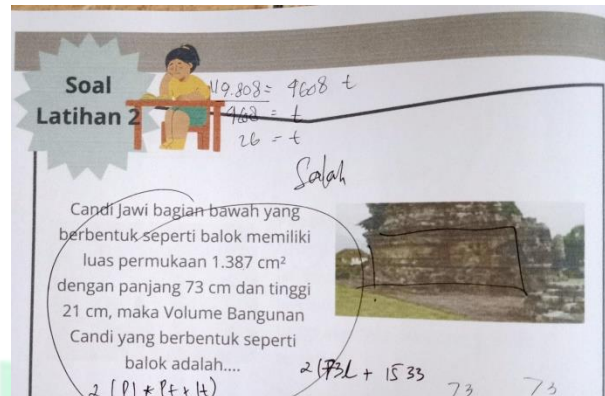 Soal
Latihan 2
119.808 = 4608 t
= t
26 = t
Salah
Candi Jawi bagian bawah yang
berbentuk seperti balok memiliki
luas permukaan 1.387 cm²
dengan panjang 73 cm dan tinggi
21 cm, maka Volume Bangunan
Candi yang berbentuk seperti
balok adalah....
2 (73l + 1533
2 (Pl + Pt + lt)
73 73